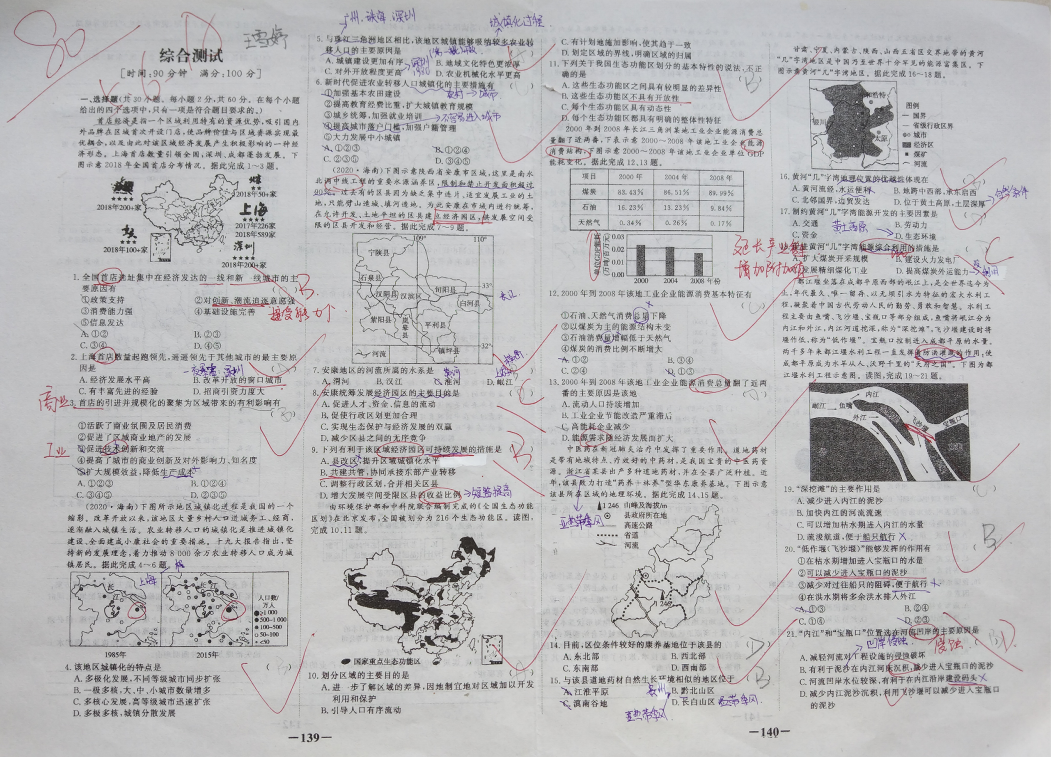 80
王雪婷
综合测试
[时间:90分钟 满分:100分]
一、选择题(共30小题,每小题2分,共60分。在每个小题
给出的四个选项中,只有一项是符合题目要求的。)
首店经济是指一个区域利用特有的资源优势,吸引国内
外品牌在区域首次开设门店,使品牌价值与区域资源实现最
优耦合,以及由此对该区域经济发展产生积极影响的一种经
济形态。上海首店数量引领全国,深圳、成都蓬勃发展。下
图示意2018年全国首店分布情况。据此完成1~3题。
2018年200+家
2018年50+家
上海
2017年226家
2018年100+家
深圳
2018年200+家
1.全国首店选址集中在经济发达的一线和新一线城市的主
要原因有
①政策支持 ②对创新、潮流追逐意愿强
③消费能力强 ④基础设施完善
⑤信息发达
A.①② B.②③
C.③④ D.④⑤
2.上海首店数量起跑领先,遥遥领先于其他城市的最主要原
因是
A.经济发展水平高 B.改革开放的窗口城市
C.有丰富先进的经验 D.招商引资力度大
3.首店的引进并规模化的聚集为区域带来的有利影响有
①活跃了商业氛围及居民消费
②促进了区域商业地产的发展
③促进技术创新和交流
④提高了城市的商业创新及对外影响力、知名度
⑤扩大规模效益,降低生产成本
A.①②③ B.①②④
C.③④⑤ D.②③⑤
(2020·海南)下图所示地区城镇化进程是我国的一个
缩影。改革开放以来,该地区大量乡村人口进城务工、经商,
逐渐融入城镇生活。农业转移人口的城镇化是推进城镇化
建设、全面建成小康社会的重要举措。十九大报告指出,坚
持新的发展理念,着力推动8000余万农业转移人口成为城
镇居民。据此完成4~6题。
上海
人口数/
万人
≥1 000
500~1 000
100~500
50~100
1985年 2015年
4.该地区城镇化的特点是
A.多极化发展,不同等级城市同步扩张
B.一极多核,大、中、小城市数量增多
C.多核心发展,高等级城市迅速扩张
D.多极多核,城镇分散发展
—139—
广州、珠海、深圳
城镇化过程
5.与珠江三角洲地区相比,该地区城镇能够吸纳较多农业转
移人口的主要原因是
A.城镇建设更加有序 B.地域文化特色更浓厚
C.对外开放程度更高 D.农业机械化水平更高
6.新时代促进农业转移人口城镇化的主要措施有
①加强基本农田建设
②提高教育经费比重,扩大城镇教育规模
③城乡统筹,加强就业培训
④提高城市落户门槛,加强户籍管理
⑤大力发展中小城镇
A.①②③ B.①②④
C.②③⑤ D.③④⑤
(2020·海南)下图示意陕西省安康市区域,这里是南水
北调中线工程的重要水源涵养区,限制和禁止开发面积超过
90%。过去有的区县因为缺乏集中连片、适宜发展工业的土
地,只能劈山造城、填河造地。为此安康在市域内进行统筹,
在允许开发、土地平坦的区县建立经济园区,供发展空间受
限的区县开发和经营。据此完成7~9题。
109° 110°
宁陕县
石泉县
汉阴县 汉滨区 旬阳县
白河县
紫阳县 平利县
岚皋县
镇坪县
33°
32°
河流
长江
7.安康地区的河流所属的水系是
A.渭河 B.汉江 C.淮河 D.岷江
8.安康统筹发展经济园区的主要目的是
A.促进人才、资金、信息的流动
B.促使行政区划更加合理
C.实现生态保护与经济发展的双赢
D.减少区县之间的无序竞争
9.下列有利于该区域经济园区可持续发展的措施是
A.县改区,提升区域城镇化水平
B.共建共管,协同承接东部产业转移
C.调整行政区划,合并相关区县
D.增大发展空间受限区县的收益比例
由环境保护部和中科院联合编制完成的《全国生态功能
区划》在北京发布,全国被划分为216个生态功能区。读图,
完成10、11题。
国家重点生态功能区 河流
10.划分区域的主要目的是
A.进一步了解区域的差异,因地制宜地对区域加以开发
利用和保护
B.引导人口有序流动
C.有计划地施加影响,使其趋于一致
D.划定区域的界线,明确区域的归属
11.下列关于我国生态功能区划分的基本特性的说法,不正
确的是
A.这些生态功能区之间具有较明显的差异性
B.这些生态功能区不具有开放性
C.每个生态功能区具有动态性
D.每个生态功能区都具有明确的整体性特征
2000年到2008年长江三角洲某地工业企业能源消费总
量翻了近两番,下表示意2000~2008年该地工业企业能源
消费结构,下图示意2000~2008年该地工业企业单位GDP
能耗变化。据此完成12、13题。
项目 2000年 2004年 2008年
煤炭 83.43% 86.51% 89.99%
石油 16.23% 13.23% 9.84%
天然气 0.34% 0.26% 0.17%
0.03
0.02
0.01
0.00
2000 2004 2008 年份
延长产业链
增加附加值
12.2000年到2008年该地工业企业能源消费基本特征有
①石油、天然气消费总量下降
②以煤炭为主的能源结构未变
③石油消费总量增幅低于天然气
④煤炭的消费比例不断增大
A.①② B.③④
C.①③ D.②④
13.2000年到2008年该地工业企业能源消费总量翻了近两
番的主要原因是该地
A.流动人口持续增加
B.工业企业节能改造严重滞后
C.产业能耗减少
D.能源需求随经济发展而扩大
中医药在新冠肺炎治疗中发挥了重要作用。道地药材
是带有地域特点、疗效好的中药材,是我国宝贵的中医药资
源。浙江省某县出产多种道地药材,并在全县广泛种植。近
年,该县致力打造“药养+林养”型华东康养基地。下图示意
该县所章区域的地理环境。据此完成14、15题。
▲1 246 山峰及海拔/m
县政府所在地
高速公路
省道
河流
亚热带季风
14.目前,区位条件较好的康养基地位于该县的
A.东北部 B.西北部
C.东南部 D.西南部
15.与该县道地药材自然生长环境相似的地区位于
A.江淮平原 B.黔北山区
C.滇南谷地 D.长白山区
贵州
—140—
甘肃、宁夏、内蒙古、陕西、山西五省区交界地带的黄河
“几”字弯地区是中国乃至世界十分罕见的能源富集区。下
图示意黄河“几”字弯地区。据此完成16~18题。
呼和浩特
银川
太原
图例
国界
省级行政区界
城市
经济区
煤矿
河流
16.黄河“几”字弯地理位置的优越性体现在
A.黄河流经,水运便利 B.地跨中西部,承东启西
C.北邻国界,边贸发达 D.位于黄土高原,土层深厚
17.制约黄河“几”字弯能源开发的主要因素是
A.交通 B.劳动力
C.资金 D.生态环境
18.促进黄河“几”字弯能源综合利用的措施是
A.扩大煤炭开采规模 B.建设大力发电厂
C.发展精细煤化工业 D.提高煤炭外运能力
都江堰坐落在成都平原西部的岷江上,是全世界迄今为
止,年代最久、唯一留存、以无坝引水为特征的宏大水利工
程,凝聚着中国古代劳动人民的勤劳、勇敢和智慧。水利工
程主要由鱼嘴、飞沙堰、宝瓶口等部分组成,鱼嘴将岷江分为
内江和外江,内江河道挖深,称为“深挖滩”。飞沙堰建设时将
堰作低,称为“低作堰”。宝瓶口控制进入成都平原的水量。
两千多年来都江堰水利工程一直发挥着防洪灌溉的作用,使
成都平原成为水旱从人、沃野千里的“天府之国”。下图为都
江堰水利工程示意图。读图,完成19~21题。
内江
岷江 鱼嘴
外江
飞沙堰
宝瓶口
19.“深挖滩”的主要作用是
A.减少进入内江的泥沙
B.加快内江的河流流速
C.可以增加枯水期进入内江的水量
D.流浚航道,便于船只航行
20.“低作堰(飞沙堰)”能够发挥的作用有
①在枯水期增加进入宝瓶口的水量
②可以减少进入宝瓶口的泥沙
③减少对过往船只的阻碍,便于航行
④在洪水期将多余洪水排入外江
A.①③ B.②④
C.③④ D.②③
21.“内江”和“宝瓶口”位置选在河流凹岸的主要原因是
A.减轻河流对工程设施的侵蚀破坏
B.有利于泥沙在内江河床沉积,减少进入宝瓶口的泥沙
C.河流凹岸水位较深,有利于在内江沿岸建设码头
D.减少内江泥沙沉积,利用飞沙堰可以减少进入宝瓶口
的泥沙